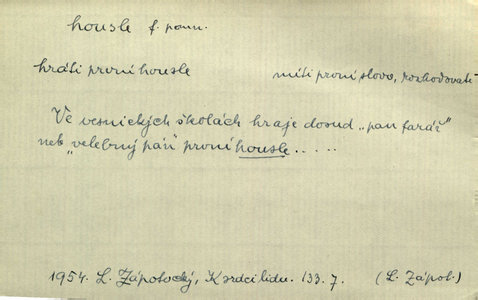 housle f. pomn.
hráti první housle míti první slovo, rozhodovati
Ve vesnických školách hraje dosud „pan farář"
neb „velebný pán" první housle . . . . .
1954. L. Zápotocký, K srdci lidu. 133. 7. (L. Zápot.)